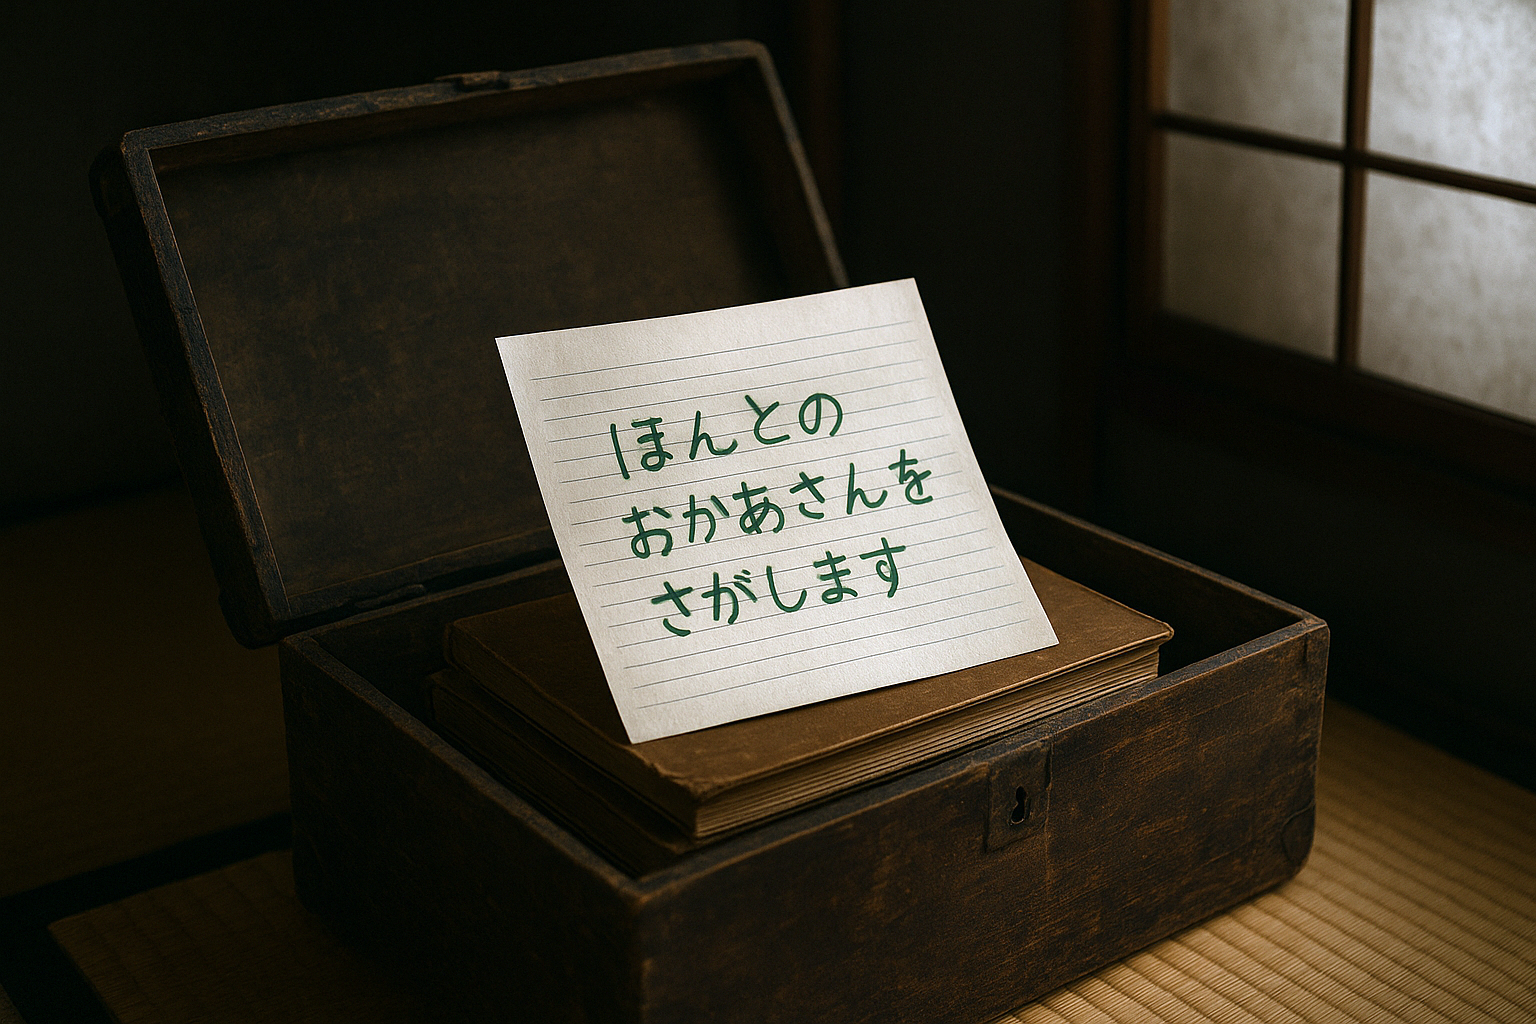 ほんとの
おかあさんを
さがします